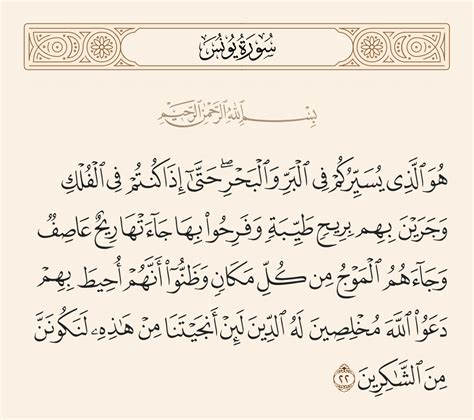 سُورَةُ يُونُسَ
بِسْمِ ٱللَّهِ ٱلرَّحْمَٰنِ ٱلرَّحِيمِ
هُوَ ٱلَّذِى يُسَيِّرُكُمْ فِى ٱلْبَرِّ وَٱلْبَحْرِ ۖ حَتَّىٰٓ إِذَا كُنتُمْ فِى ٱلْفُلْكِ
وَجَرَيْنَ بِهِم بِرِيحٍ طَيِّبَةٍ وَفَرِحُوا۟ بِهَا جَآءَتْهَا رِيحٌ عَاصِفٌ
وَجَآءَهُمُ ٱلْمَوْجُ مِن كُلِّ مَكَانٍ وَظَنُّوٓا۟ أَنَّهُمْ أُحِيطَ بِهِمْ
دَعَوُا۟ ٱللَّهَ مُخْلِصِينَ لَهُ ٱلدِّينَ لَئِنْ أَنجَيْتَنَا مِنْ هَٰذِهِۦ لَنَكُونَنَّ
مِنَ ٱلشَّٰكِرِينَ ٢٢